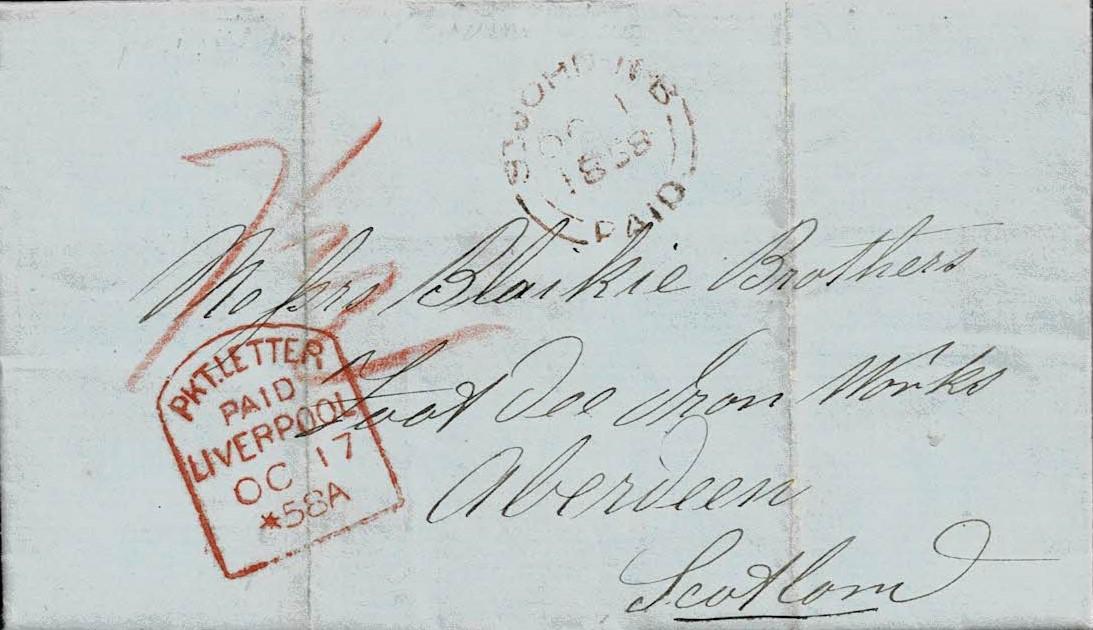 ST. JOHN N.B
OC 1
1858
PAID
Messrs Blaikie Brothers
Foot Dee Iron Works
Aberdeen
Scotland
PKT. LETTER
PAID
LIVERPOOL
OC 17
*58A